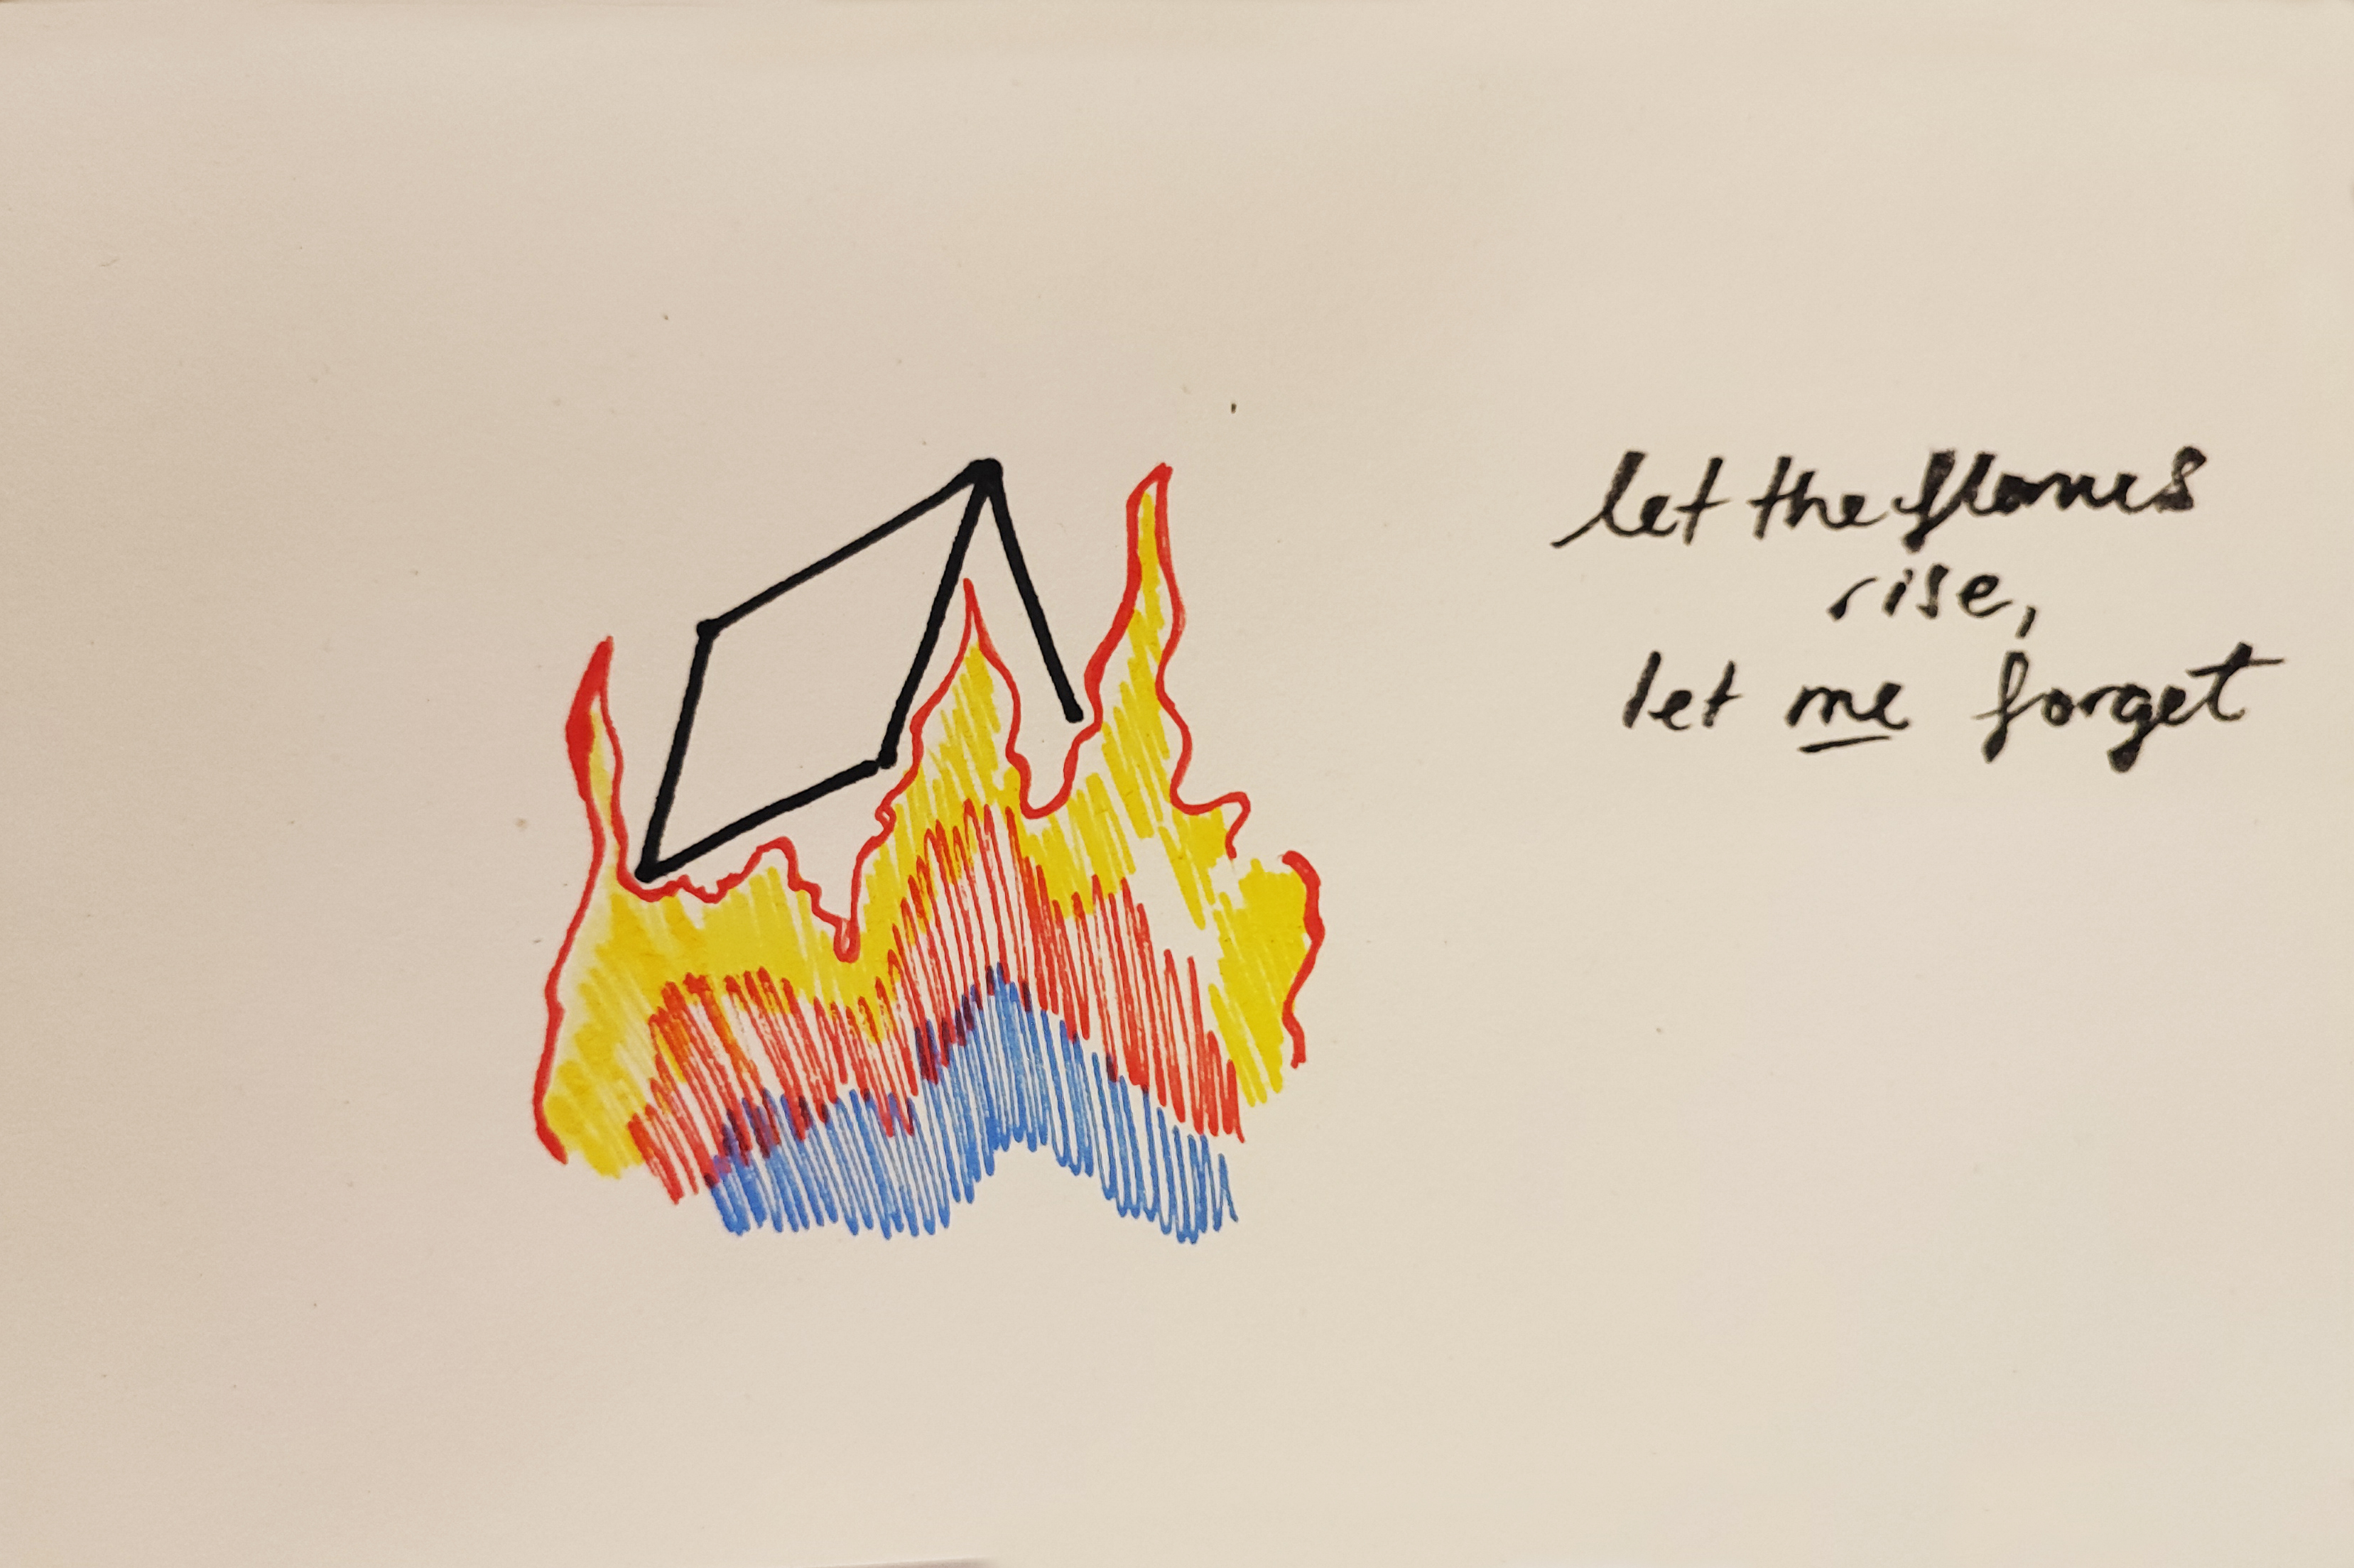 let the flames
rise,
let me forget